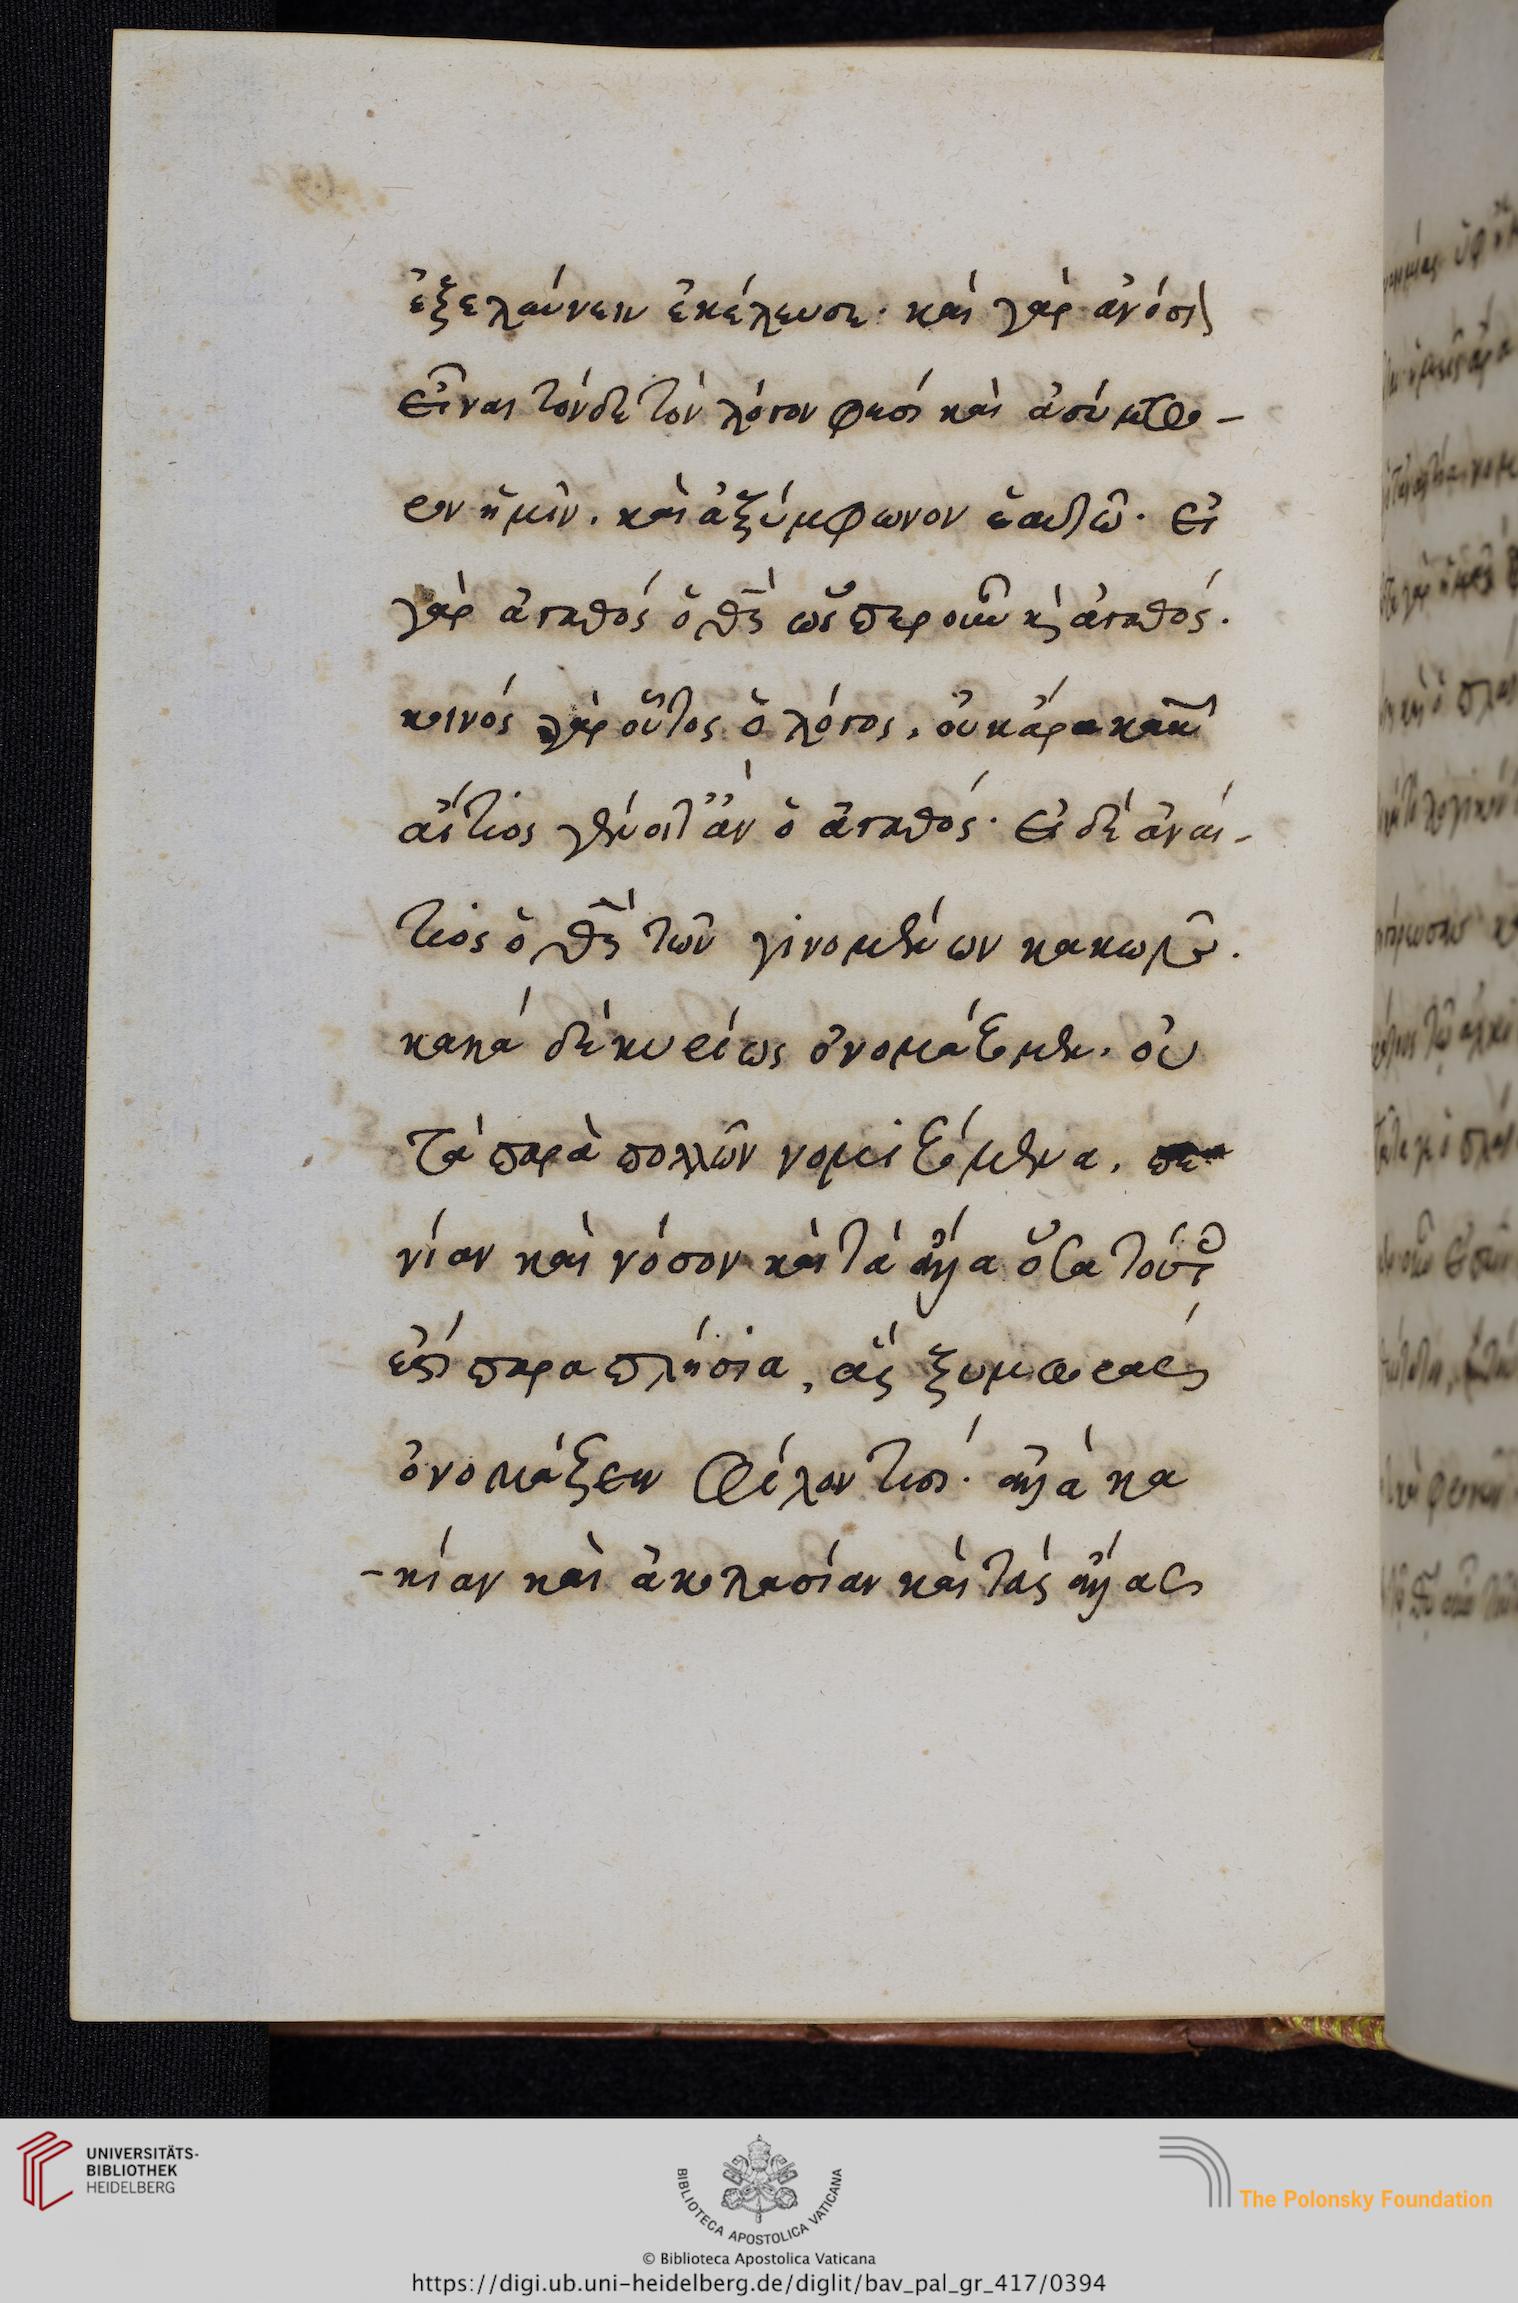 ἐξελαύνειν ἐκέλευσε· καὶ γὰρ ἀνόσι
εἶναι τόνδε τὸν λόγον φησὶ καὶ ἀσύμφο-
ρον ἡμῖν. καὶ ἀξύμφωνον ἑαυτῶ· εἰ
γὰρ ἀγαθὸς ὁ θς ὥσπερ οὖν κὶ ἀγαθός.
κοινὸς γὰρ οὗτος ὁ λόγος, οὐκ ἄρα κακῶν
αἴτιος γένοιτ' ἂν ὁ ἀγαθός· εἰ δὲ ἀναί-
τιος ὁ θς τῶν γινομένων κακῶν.
κακὰ δὲ κυρίως ὀνομάζομεν. οὐ
τὰ παρὰ πολλῶν νομιζόμενα, πε
νίαν καὶ νόσον καὶ τὰ ἄλλα ὅσα τούτοις
ἐστὶ παραπλήσια, ἃς ξυμφορὰς
ὀνομάζειν φίλον τισί· ἀλλὰ κα
-κίαν καὶ ἀκολασίαν καὶ τὰς ἄλλας
UNIVERSITÄTS-
BIBLIOTHEK
HEIDELBERG
BIBLIOTECA APOSTOLICA VATICANA
The Polonsky Foundation
© Biblioteca Apostolica Vaticana
https://digi.ub.uni-heidelberg.de/diglit/bav_pal_gr_417/0394